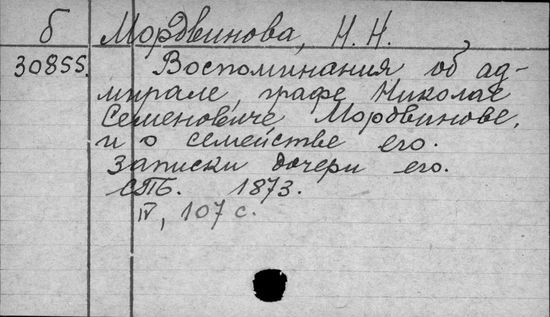 б Мордвинова, Н. Н.
30855. Воспоминания об ад-
мирале, графе Николае
Семеновиче Мордвинове,
и о семействе его.
Записки дочери его.
СПБ. 1873.
IV, 107 с.